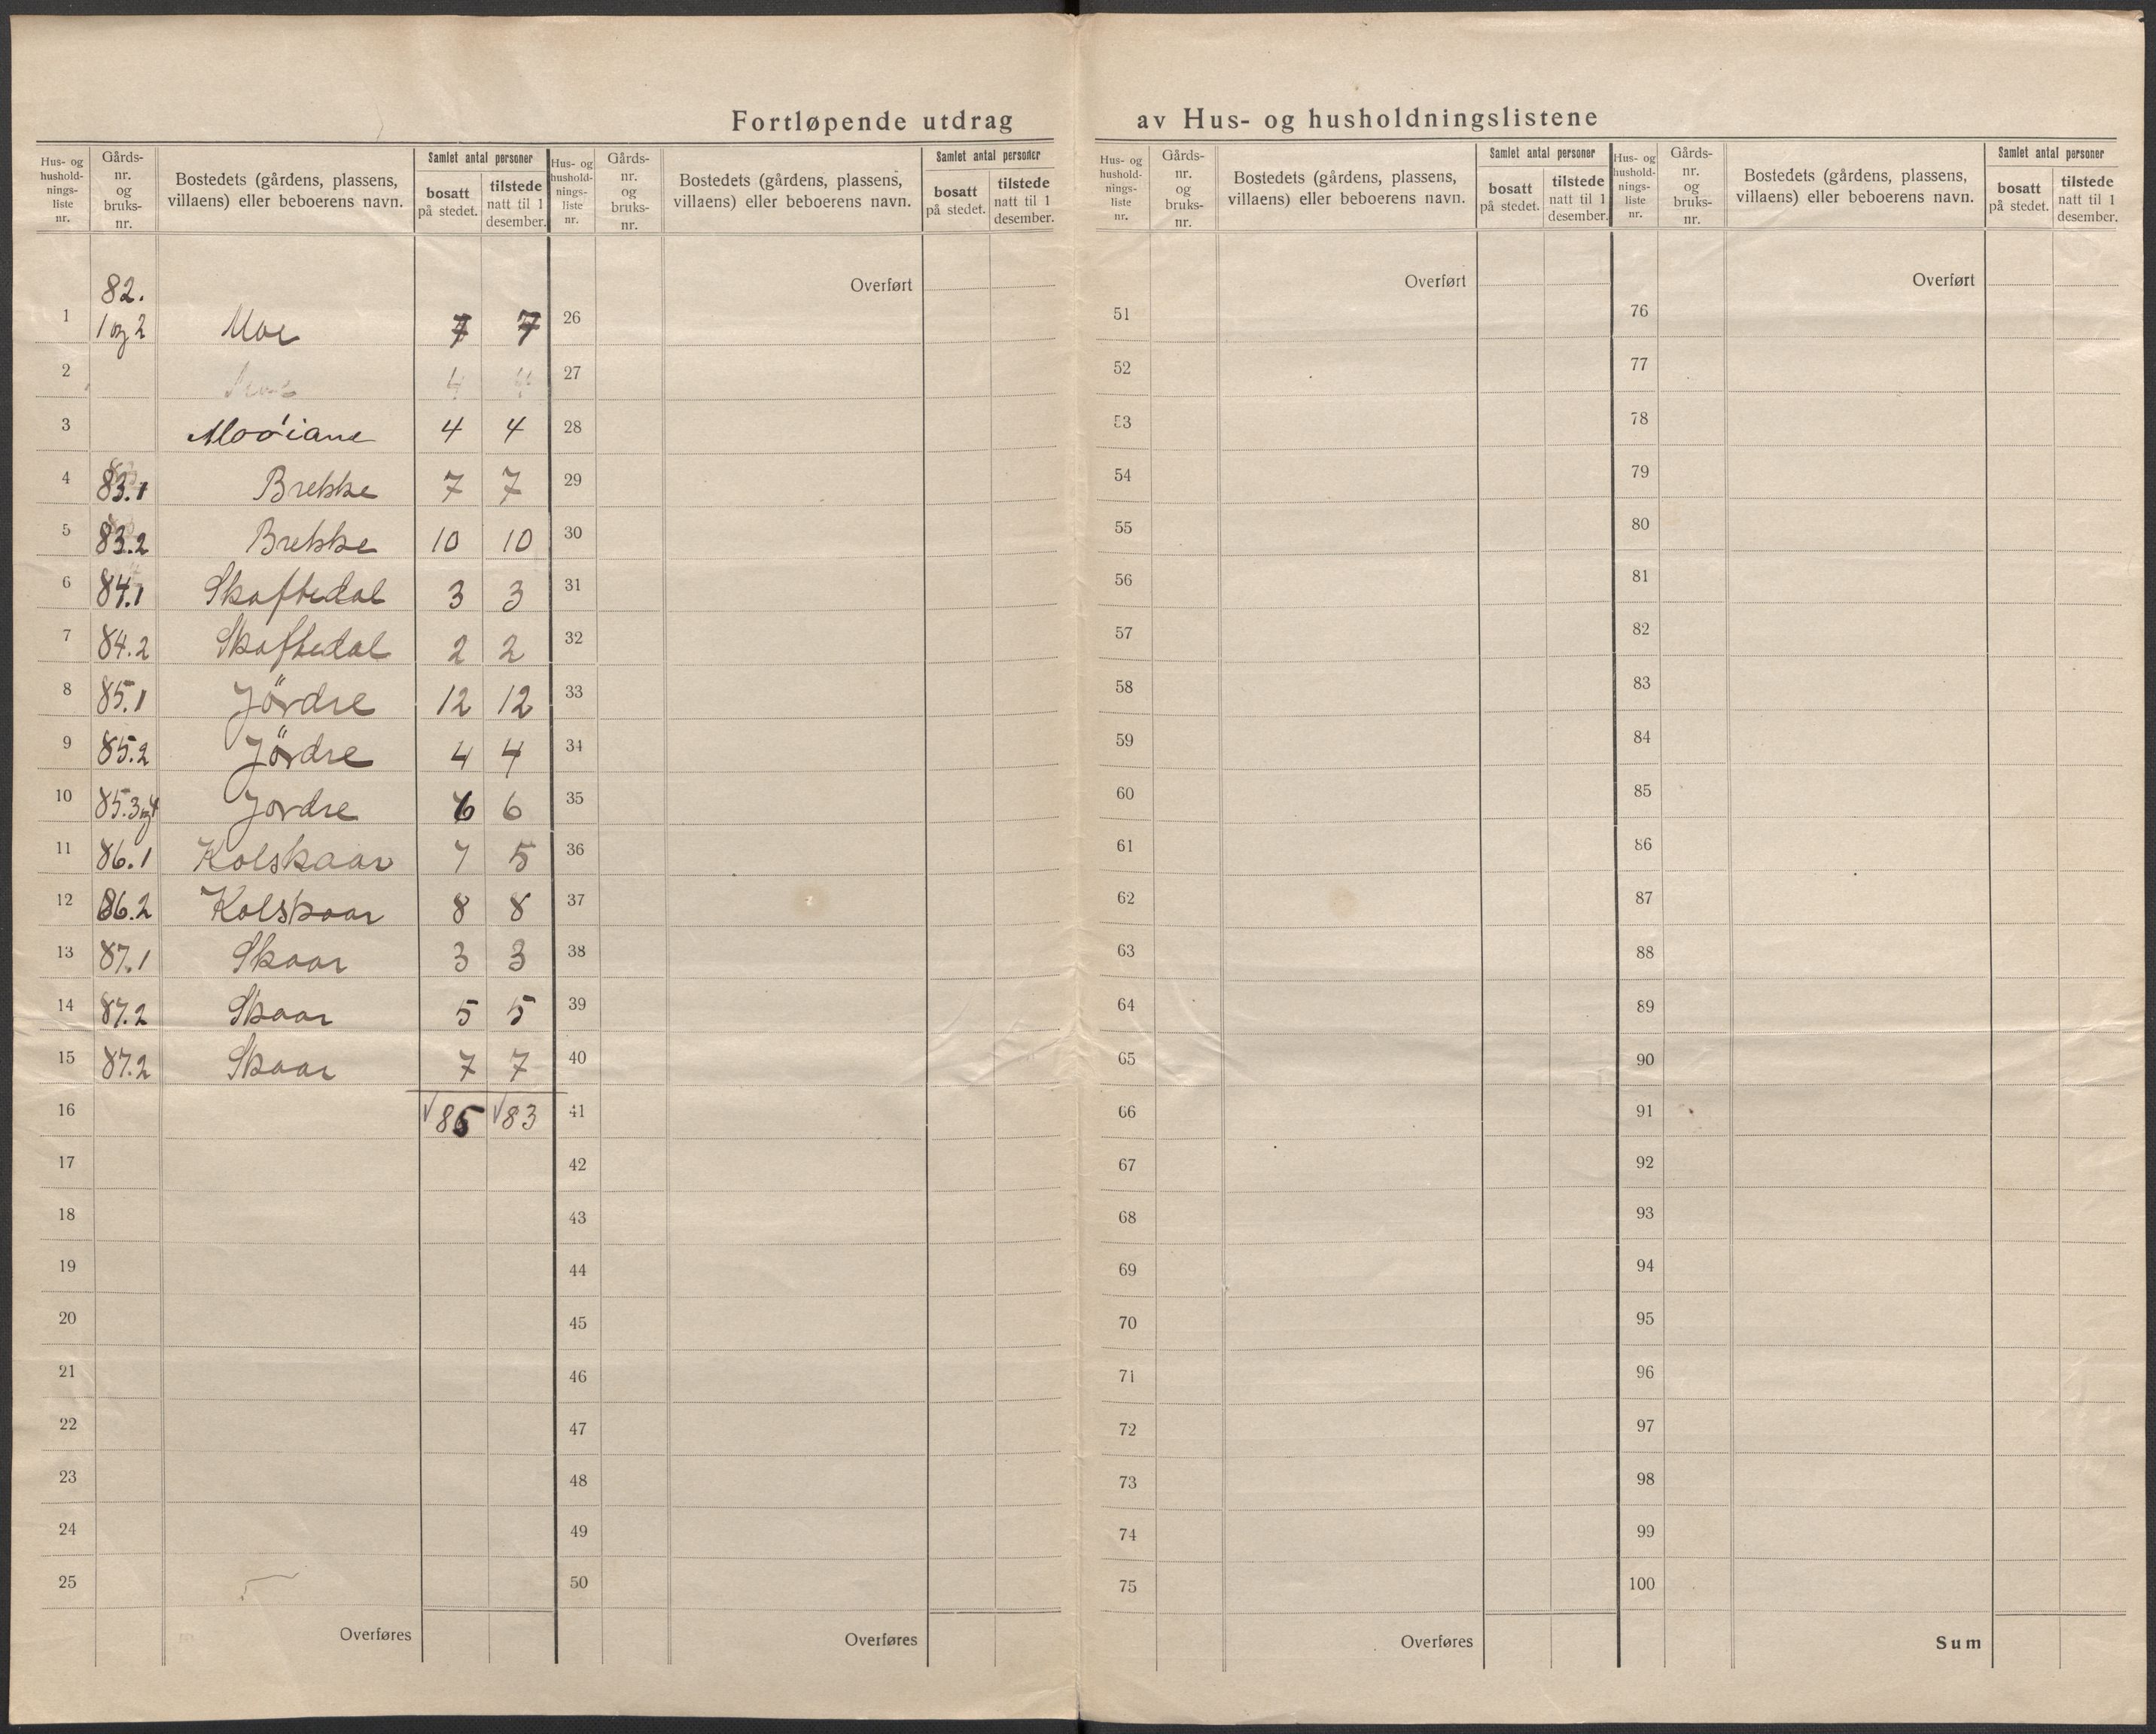 Fortløpende utdrag av Hus- og husholdningslistene
Hus- og hushold-nings-liste nr. Gårds-nr. og bruks-nr. Bostedets (gårdens, plassens, villaens) eller beboerens navn. Samlet antal personer bosatt på stedet. tilstede natt til 1 desember.
Hus- og hushold-nings-liste nr. Gårds-nr. og bruks-nr. Bostedets (gårdens, plassens, villaens) eller beboerens navn. Samlet antal personer bosatt på stedet. tilstede natt til 1 desember.
Hus- og hushold-nings-liste nr. Gårds-nr. og bruks-nr. Bostedets (gårdens, plassens, villaens) eller beboerens navn. Samlet antal personer bosatt på stedet. tilstede natt til 1 desember.
Hus- og hushold-nings-liste nr. Gårds-nr. og bruks-nr. Bostedets (gårdens, plassens, villaens) eller beboerens navn. Samlet antal personer bosatt på stedet. tilstede natt til 1 desember.
82.
1 1 og 2 Moe 7 7
2 4 4
3 4 4
4 83.1 Brekke 7 7
5 83.2 Brekke 10 10
6 84.1 Skaftedal 3 3
7 84.2 Skaftedal 2 2
8 85.1 Jördre 12 12
9 85.2 Jördre 4 4
10 85.3 og 4 Jordre 6 6
11 86.1 Kolskaar 7 5
12 86.2 Kolskaar 8 8
13 87.1 Skaar 3 3
14 87.2 Skaar 5 5
15 87.2 Skaar 7 7
16 √85 √83
17
18
19
20
21
22
23
24
25
Overføres
Overført
26
27
28
29
30
31
32
33
34
35
36
37
38
39
40
41
42
43
44
45
46
47
48
49
50
Overføres
Overført
51
52
53
54
55
56
57
58
59
60
61
62
63
64
65
66
67
68
69
70
71
72
73
74
75
Overføres
Overført
76
77
78
79
80
81
82
83
84
85
86
87
88
89
90
91
92
93
94
95
96
97
98
99
100
Sum